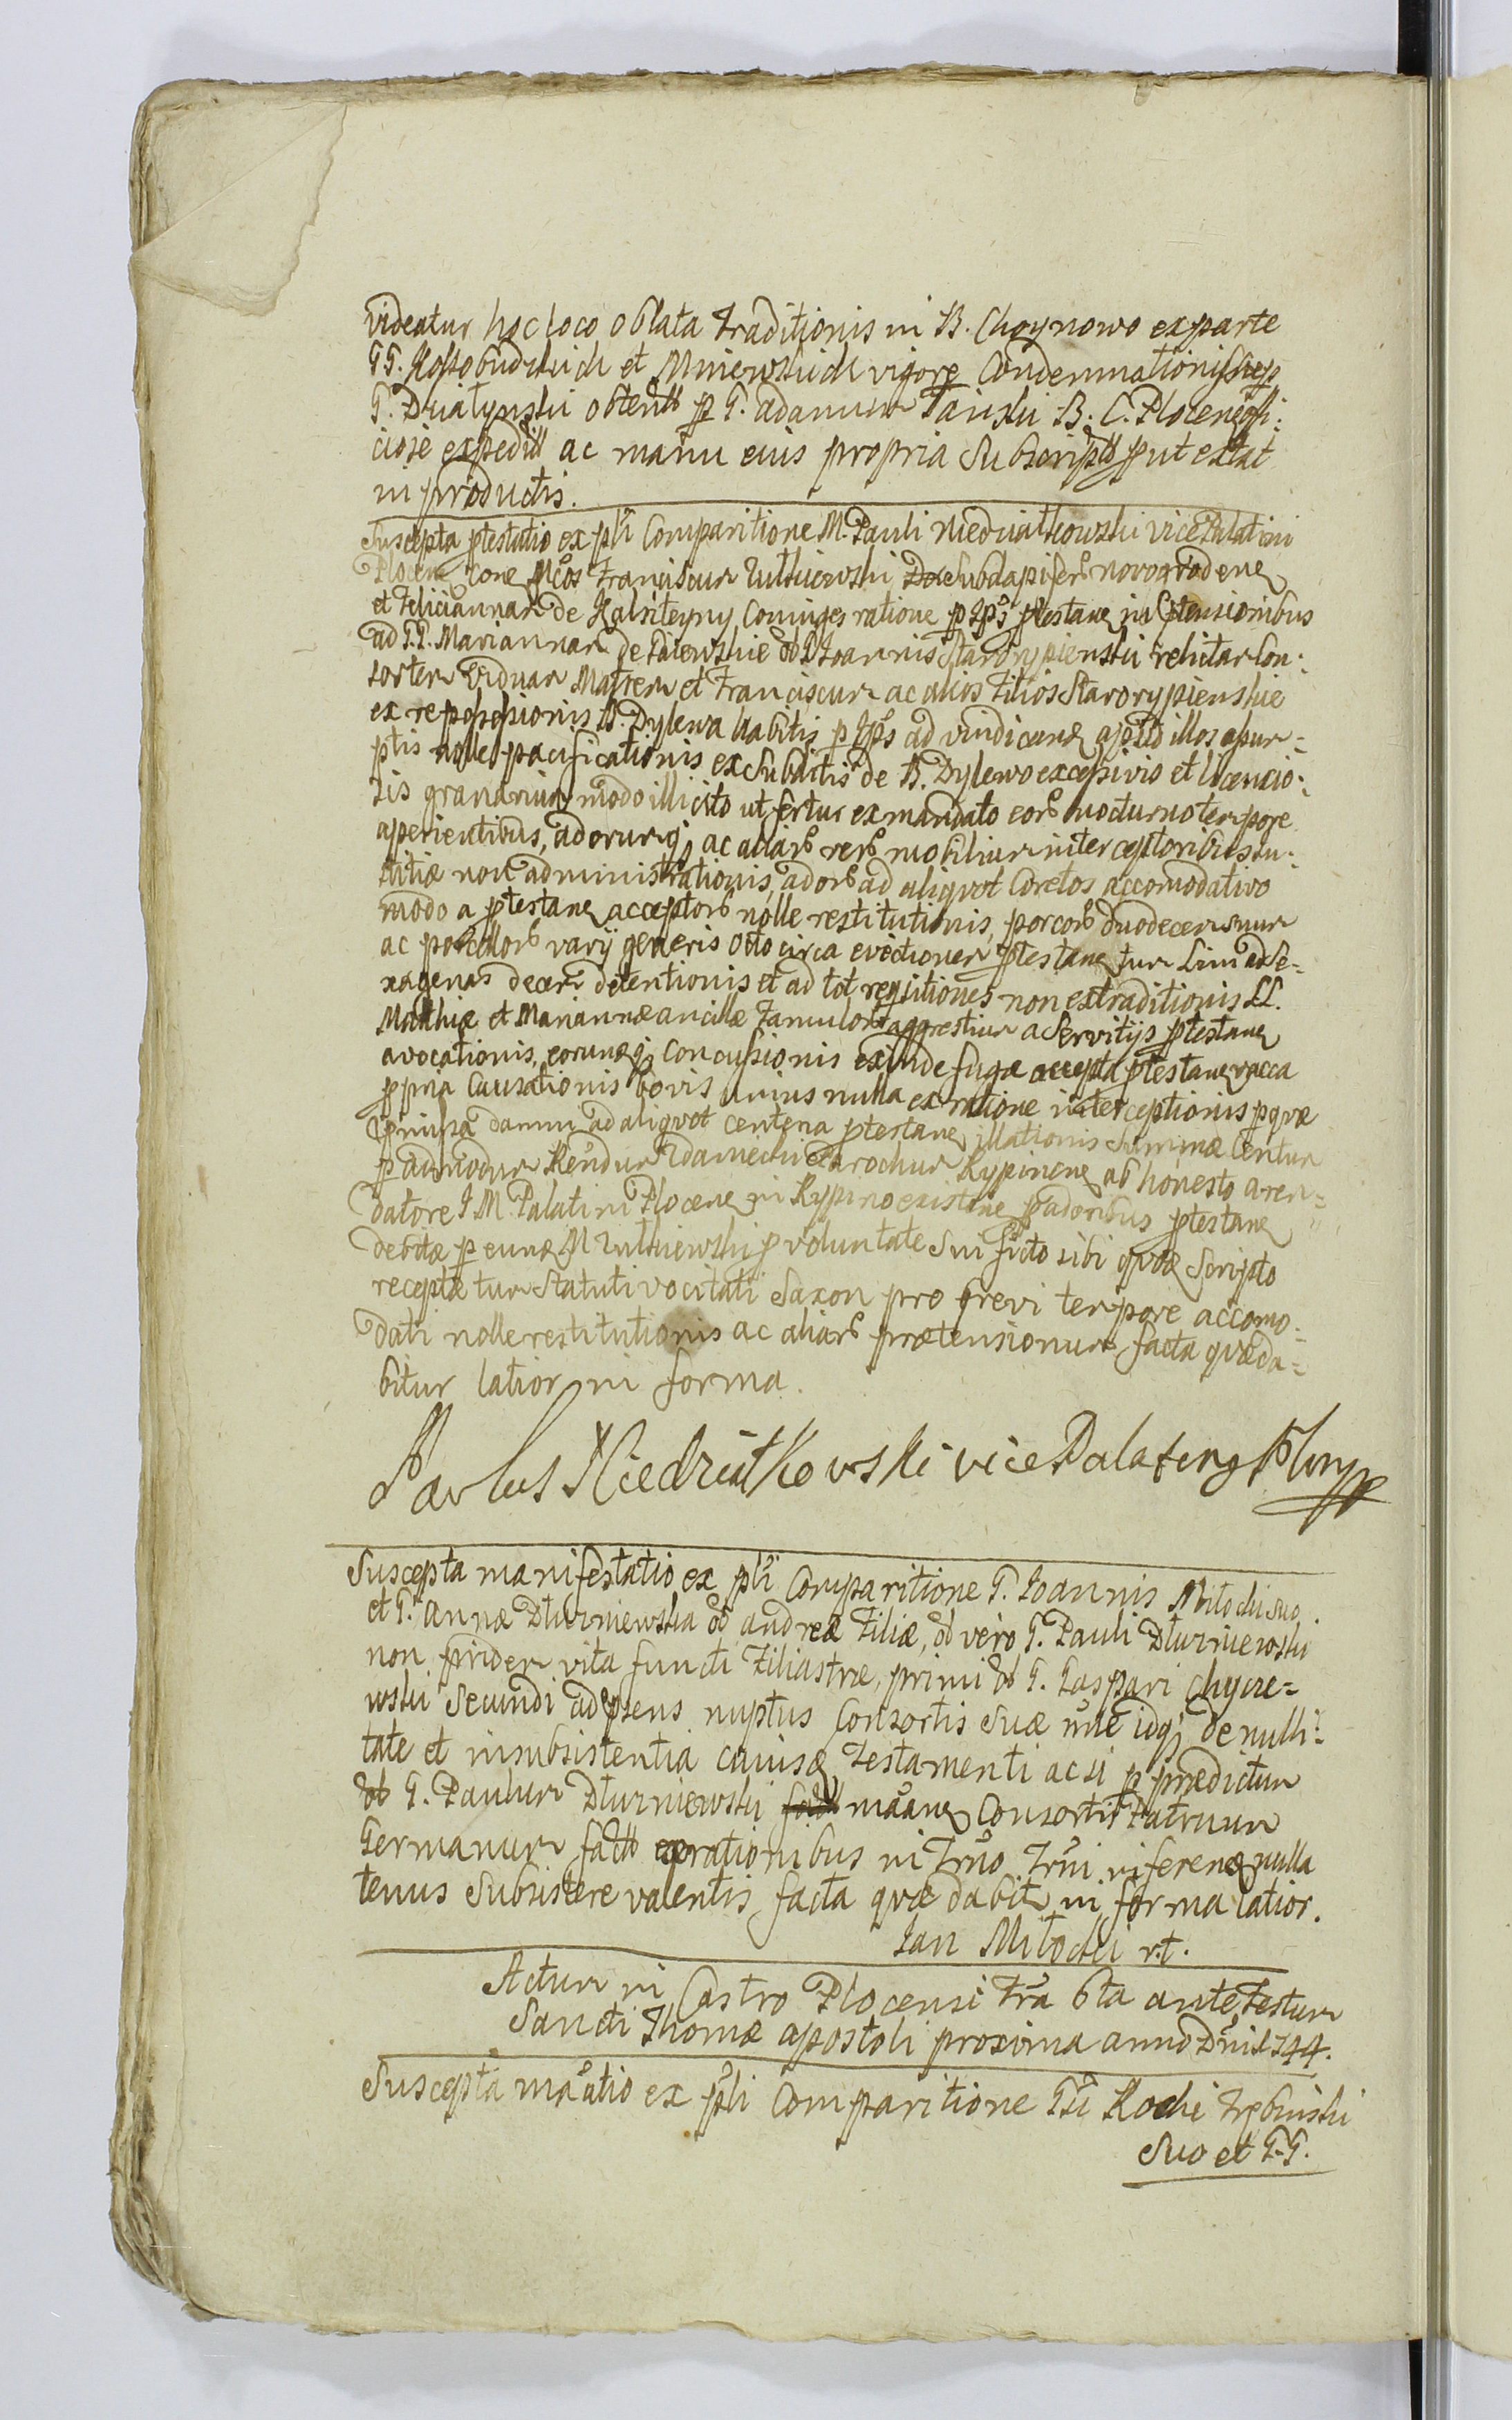 videatur hoc loco oblata Traditionis in B. Choynowo ex parte
GG. Kossobudzkich et Mniewskich vigore Condemnationis
G. Działynski obtent p G. Adamum Tański B. C. Plocen offi:
ciose expedit ac manu eius propria Subscript put extat
in productis.
Suscepta ptestatio ex pli Comparitione M. Pauli Niedziałkowski Vice Palatini
Plocen cone Mcos Franciscum Rutkiewski Subdapiferu novogroden
et Feliciannam de Kalsteyny Coniuges ratione p Ips ptestan in ptensionibus
ad GG. Mariannam de olim Ioannis Starorypienski relictam Con:
sortem Viduam Matrem et Franciscum ac alios Filios Starorypienskie
ex repossessionis B. Dylewa habitis p Ips ad vindicand apud illos assum:
ptis nolle pacificationis ex Subditis de B. Dylewo excessivis et licencio:
sis granarium modo illicito ut fertur ex mandato eoru nocturno tempore
aperientibus, adorumq ac aliaru reru mobilium interceptoribus Iu:
stitiæ non administrationis, adoru ad aliqvot Coretos accomodativo
modo a ptestan acceptoru nolle restitutionis, porcoru duodecem sum
ac porcelloru varij generis octo circa evictionem ptestan tum Lini ad se=
xagenas decem detentionis et ad tot reqsitiones non extraditionis LL.
Mathiæ et Mariannæ ancillæ Famuloru aggrestium a Servitijs ptestan
avocationis, eorundq Concussionis exinde fugæ accepta ptestan vacca
ppria Causationis bovis unius nulla ex ratione interceptionis p qvæ
pmissa damni ad aliqvot centena ptestan illationis Summæ Centum
p admodum Rendum Adamecki Parochum Rypinen ab honesto aren=
datore I M. Palatini Plocen in Rypino existen p adoribus ptestan
debitæ p eund M Rutkiewski p voluntate Sui ficto sibi Scripto
receptæ tum Statuti vocitati Saxon pro brevi tempore accomo:
dati nolle restitutionis ac aliaru prætensionum facta qvæ da=
bitur latior in forma.
Paulus Niedziałkowski vice Palating Plon mp
Suscepta manifestatio ex pli Comparitione G. Ioannis Mitocki suo
et G. Annæ Dłurniewska olim Andreæ Filiæ, olim vero G. Pauli Dłurniewski
non pridem vita functi Filiastræ, primi olim G. Gaspari Chycze=
wski Secundi ad psens nuptus Consortis Suæ nne idq de nulli:
tate et insubsistentia cuiusd Testamenti ac si p prædictum
olim G. Paulum Dłurniewski maan Consortis Patruum
Germanum fact ex rationibus in Trno Trni inferend nulla
tenus Subsistere valentis facta qvæ dabit in forma latior.
Jan Mitocki r.t.
Actum in Castro Plocensi Fra 6ta ante Festum
Sancti Thomæ apostoli proxima anno Dni 1744.
Suscepta maatio ex pli Comparitione Gsi Rochi Trębinski
Suo et G.G.